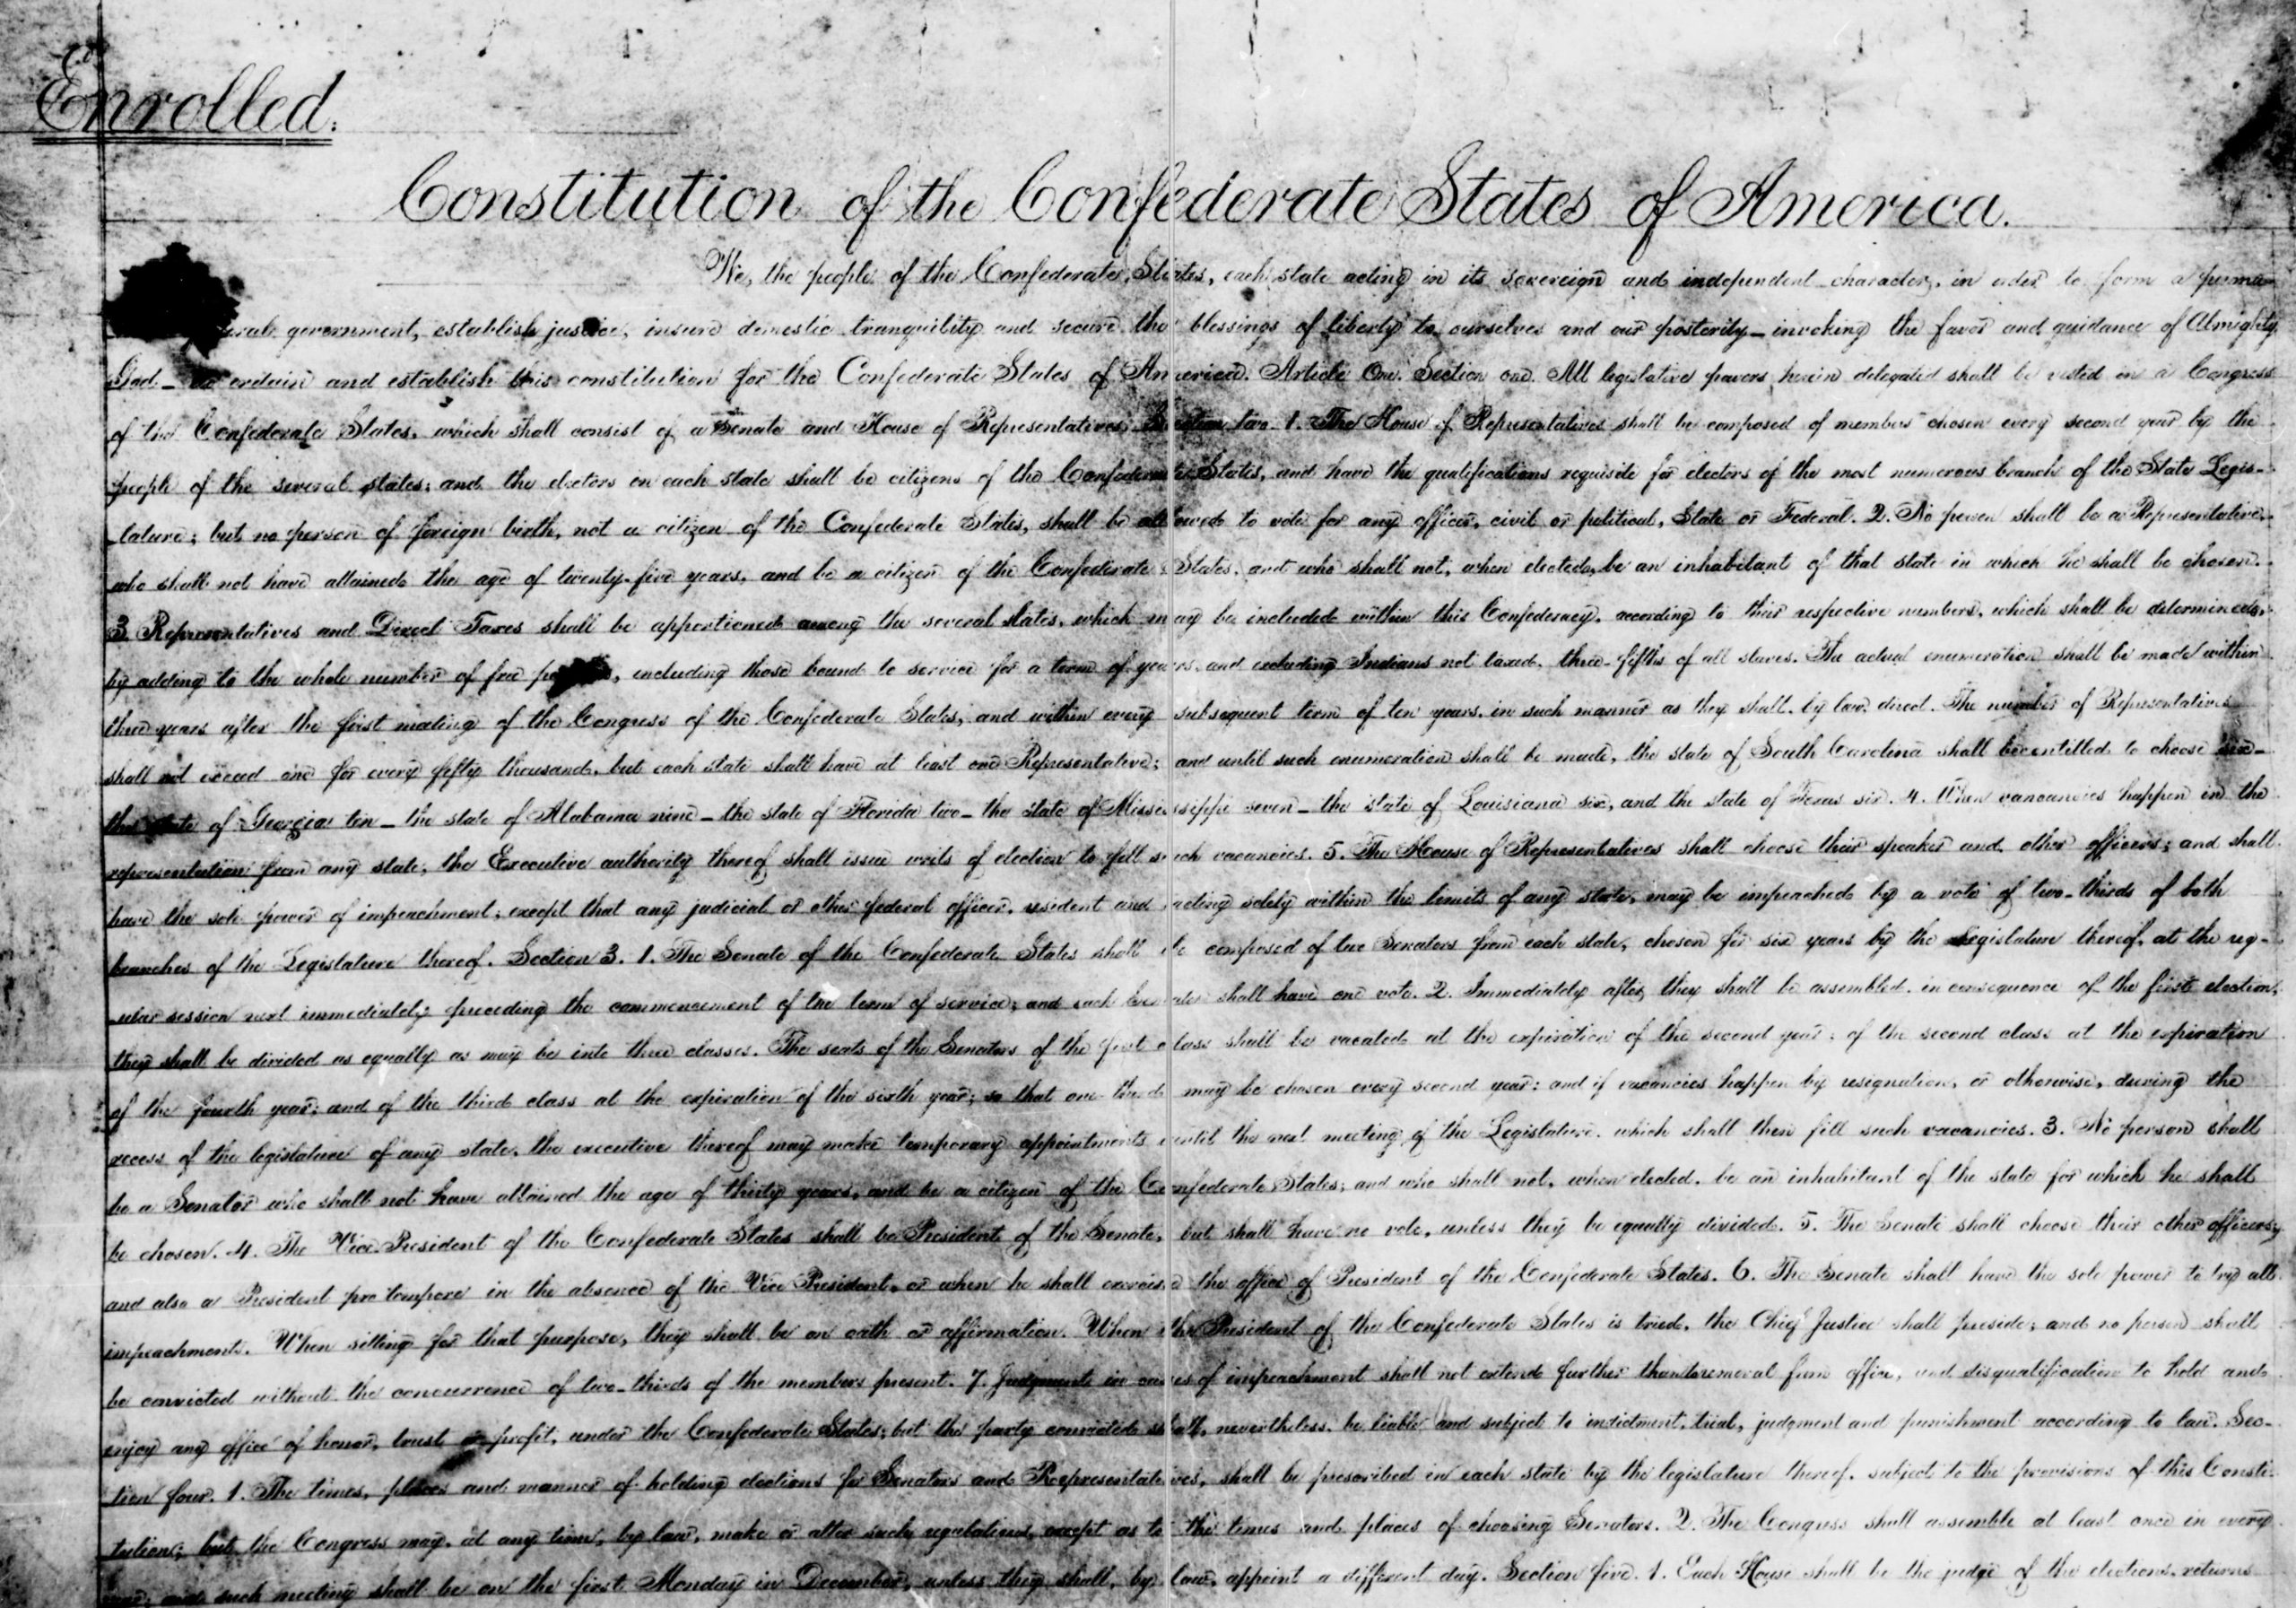 Enrolled.
Constitution of the Confederate States of America.
We, the people of the Confederate States, each state acting in its sovereign and independent character, in order to form a perma-
government, establish justice, insure domestic tranquility and secure the blessings of liberty to ourselves and our posterity — invoking the favor and guidance of Almighty
God — do ordain and establish this constitution for the Confederate States of America. Article One. Section one. All legislative powers herein delegated shall be vested in a Congress
of the Confederate States, which shall consist of a Senate and House of Representatives. Section two. 1. The House of Representatives shall be composed of members chosen every second year by the
people of the several states; and the electors in each state shall be citizens of the Confederate States, and have the qualifications requisite for electors of the most numerous branch of the State Legis-
lature; but no person of foreign birth, not a citizen of the Confederate States, shall be allowed to vote for any officer, civil or political, State or Federal. 2. No person shall be a Representative,
who shall not have attained the age of twenty-five years, and be a citizen of the Confederate States, and who shall not, when elected, be an inhabitant of that state in which he shall be chosen.
3. Representatives and Direct Taxes shall be apportioned among the several states, which may be included within this Confederacy, according to their respective numbers, which shall be determined,
by adding to the whole number of free persons, including those bound to service for a term of years, and excluding Indians not taxed, three-fifths of all slaves. The actual enumeration shall be made within
three years after the first meeting of the Congress of the Confederate States, and within every subsequent term of ten years, in such manner as they shall, by law, direct. The number of Representatives
shall not exceed one for every fifty thousand, but each state shall have at least one Representative; and until such enumeration shall be made, the state of South Carolina shall be entitled to choose six —
the state of Georgia ten — the state of Alabama nine — the state of Florida two — the state of Mississippi seven — the state of Louisiana six, and the state of Texas six. 4. When vancancies happen in the
representation from any state, the Executive authority thereof shall issue writs of election to fill such vacancies. 5. The House of Representatives shall choose their speaker and other officers; and shall
have the sole power of impeachment; except that any judicial or other federal officer, resident and acting solely within the limits of any state, may be impeached by a vote of two-thirds of both
branches of the Legislature thereof. Section 3. 1. The Senate of the Confederate States shall be composed of two Senators from each state, chosen for six years by the Legislature thereof, at the reg-
ular session next immediately preceding the commencement of the term of service; and each Senator shall have one vote. 2. Immediately after they shall be assembled, in consequence of the first election,
they shall be divided as equally as may be into three classes. The seats of the Senators of the first class shall be vacated at the expiration of the second year; of the second class at the expiration
of the fourth year; and of the third class at the expiration of the sixth year; so that one-third may be chosen every second year; and if vacancies happen by resignation, or otherwise, during the
recess of the legislature of any state, the executive thereof may make temporary appointments until the next meeting of the Legislature, which shall then fill such vacancies. 3. No person shall
be a Senator who shall not have attained the age of thirty years, and be a citizen of the Confederate States; and who shall not, when elected, be an inhabitant of the state for which he shall
be chosen. 4. The Vice President of the Confederate States shall be President of the Senate, but shall have no vote, unless they be equally divided. 5. The Senate shall choose their other officers;
and also a President pro tempore in the absence of the Vice President, or when he shall exercise the office of President of the Confederate States. 6. The Senate shall have the sole power to try all
impeachments. When sitting for that purpose, they shall be on oath or affirmation. When the President of the Confederate States is tried, the Chief Justice shall preside; and no person shall
be convicted without the concurrence of two-thirds of the members present. 7. Judgments in cases of impeachment shall not extend further than to removal from office, and disqualification to hold and
enjoy any office of honor, trust or profit, under the Confederate States; but the party convicted shall, nevertheless, be liable and subject to indictment, trial, judgment and punishment according to law. Sec-
tion four. 1. The times, places and manner of holding elections for Senators and Representatives, shall be prescribed in each state by the legislature thereof, subject to the provisions of this Consti-
tution; but the Congress may, at any time, by law, make or alter such regulations, except as to the times and places of choosing Senators. 2. The Congress shall assemble at least once in every
year; and such meeting shall be on the first Monday in December, unless they shall, by law, appoint a different day. Section five. 1. Each House shall be the judge of the elections, returns